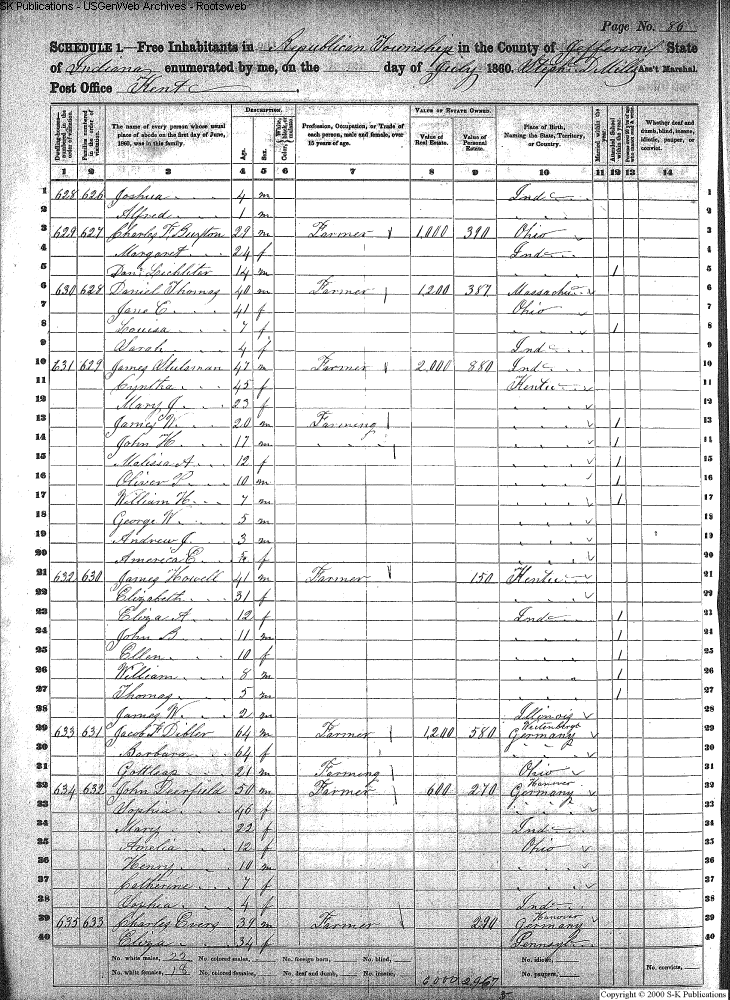 S-K Publications - USGenWeb Archives - Rootsweb
Page No. 86
SCHEDULE 1.—Free Inhabitants in Republican Township in the County of Jefferson State
of Indiana enumerated by me, on the day of July 1860. Ass't Marshal.
Post Office Kent
Dwelling-houses—numbered in the order of visitation.
Families numbered in the order of visitation.
The name of every person whose usual place of abode on the first day of June, 1860, was in this family.
DESCRIPTION.
Age.
Sex.
Color, White, black, or mulatto.
Profession, Occupation, or Trade of each person, male and female, over 15 years of age.
VALUE OF ESTATE OWNED.
Value of Real Estate.
Value of Personal Estate.
Place of Birth, Naming the State, Territory, or Country.
Married within the year.
Attended School within the year.
Whether deaf and dumb, blind, insane, idiotic, pauper, or convict.
1 2 3 4 5 6 7 8 9 10 11 12 13 14
1 628 626 Joshua 4 m Ind 1
2 Alfred 1 m " 2
3 629 627 Charles F. Buxton 29 m Farmer 1,000 390 Ohio 3
4 Margaret 24 f Ind 4
5 Danl Lechliter 14 m " 1 5
6 630 628 Daniel Thomas 40 m Farmer 1,200 387 Massachu 6
7 Jane C. 41 f Ohio 7
8 Louisa 7 f " 1 8
9 Sarah 4 f Ind 9
10 631 629 James Stutsman 47 m Farmer 2,000 880 Ind 10
11 Cyntha 45 f Kentu 11
12 Mary J. 23 f " 12
13 James W. 20 m Farming " 1 13
14 John H. 17 m " " 1 14
15 Malissa A. 12 f " 1 15
16 Oliver P. 10 m " 1 16
17 William H. 7 m " 1 17
18 George W. 5 m " 18
19 Andrew J. 3 m " 19
20 America E. f " 20
21 632 630 James Howell 41 m Farmer 150 Kentu 21
22 Elizabeth 31 f " 22
23 Eliza A. 12 f Ind 1 23
24 John B. 11 m " 1 24
25 Ellen 10 f " 1 25
26 William 8 m " 1 26
27 Thomas 5 m " 1 27
28 James W. 2 m Illinois 28
29 633 631 Jacob F. Dibler 64 m Farmer 1,200 580 Germany 29
30 Barbara 64 f " 30
31 Gottleap 21 m Farming Ohio 31
32 634 632 John Deerfield 50 m Farmer 600 270 Hanover Germany 32
33 Sophia 46 f " 33
34 Mary 22 f Ind 34
35 Amelia 12 f Ohio 35
36 Henry 10 m " 36
37 Catherine 7 f " 37
38 Sophia 4 f Ind 38
39 635 633 Charles Evers 39 m Farmer 290 Hanover Germany 39
40 Eliza 34 f Pennsyl 40
No. white males, 22 No. colored males, No. foreign born, No. blind, No. idiotic, No. convicts,
No. white females, 18 No. colored females, No. deaf and dumb, No. insane, 6000 2967 No. paupers,
Copyright © 2000 S-K Publications